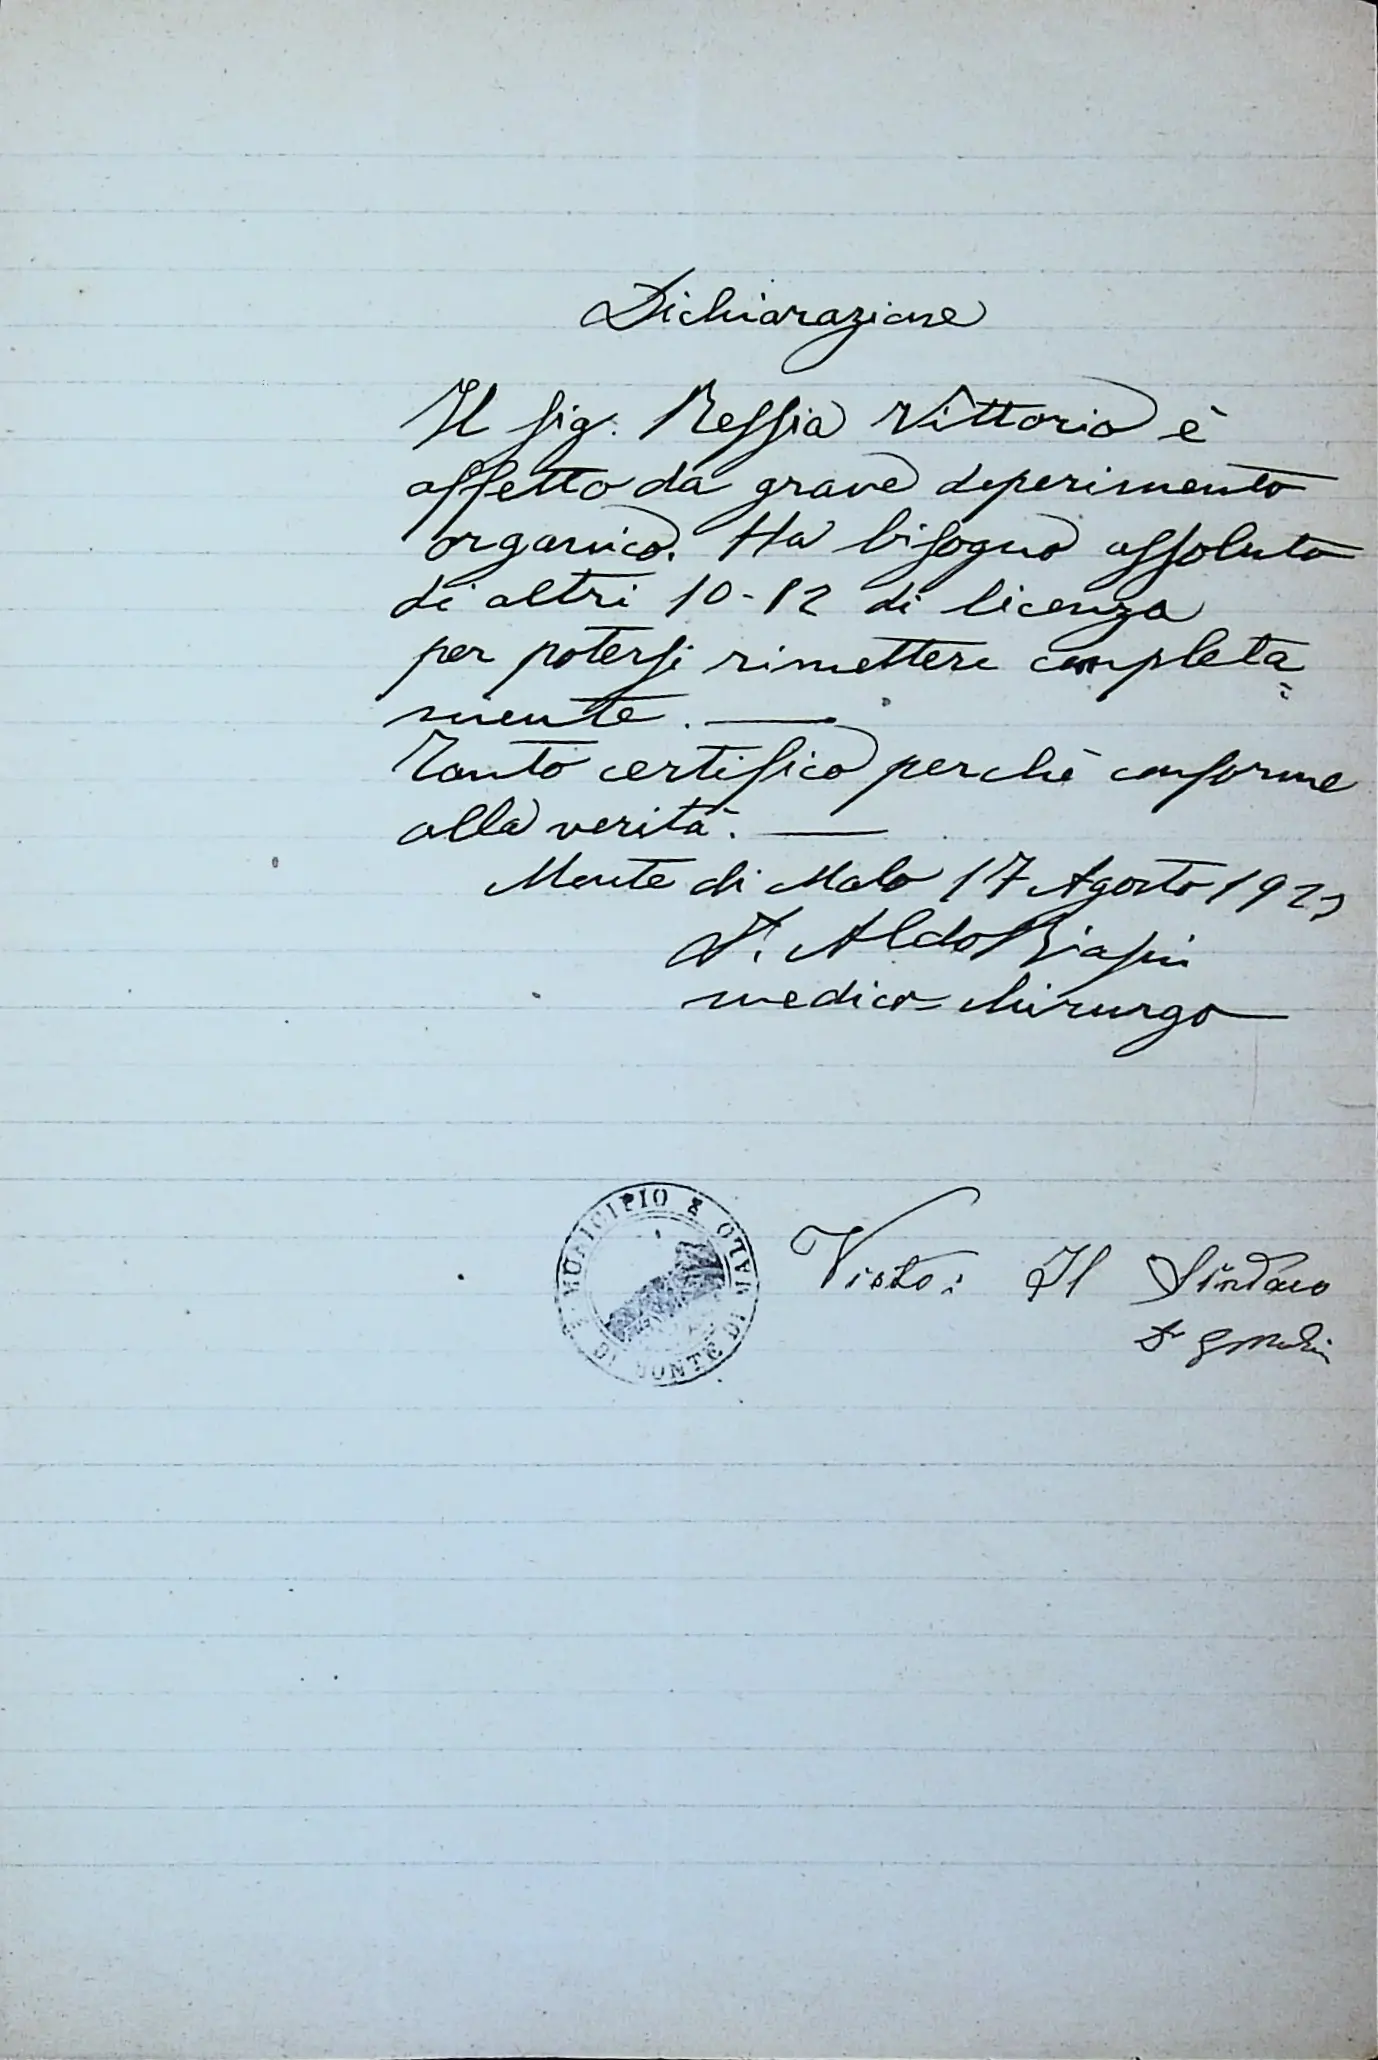 Dichiarazione
Il sig. Ressia Vittorio è
affetto da grave deperimento
organico. Ha bisogno assoluto
di altri 10-12 di licenza
per potersi rimettere completa=
mente. —
Tanto certifico perchè conforme
alla verità. —
Monte di Malo 17 Agosto 192
Dr. Aldo Biasin
medico-chirurgo
MUNICIPIO DI MONTE DI MALO
Visto: Il Sindaco
Dr